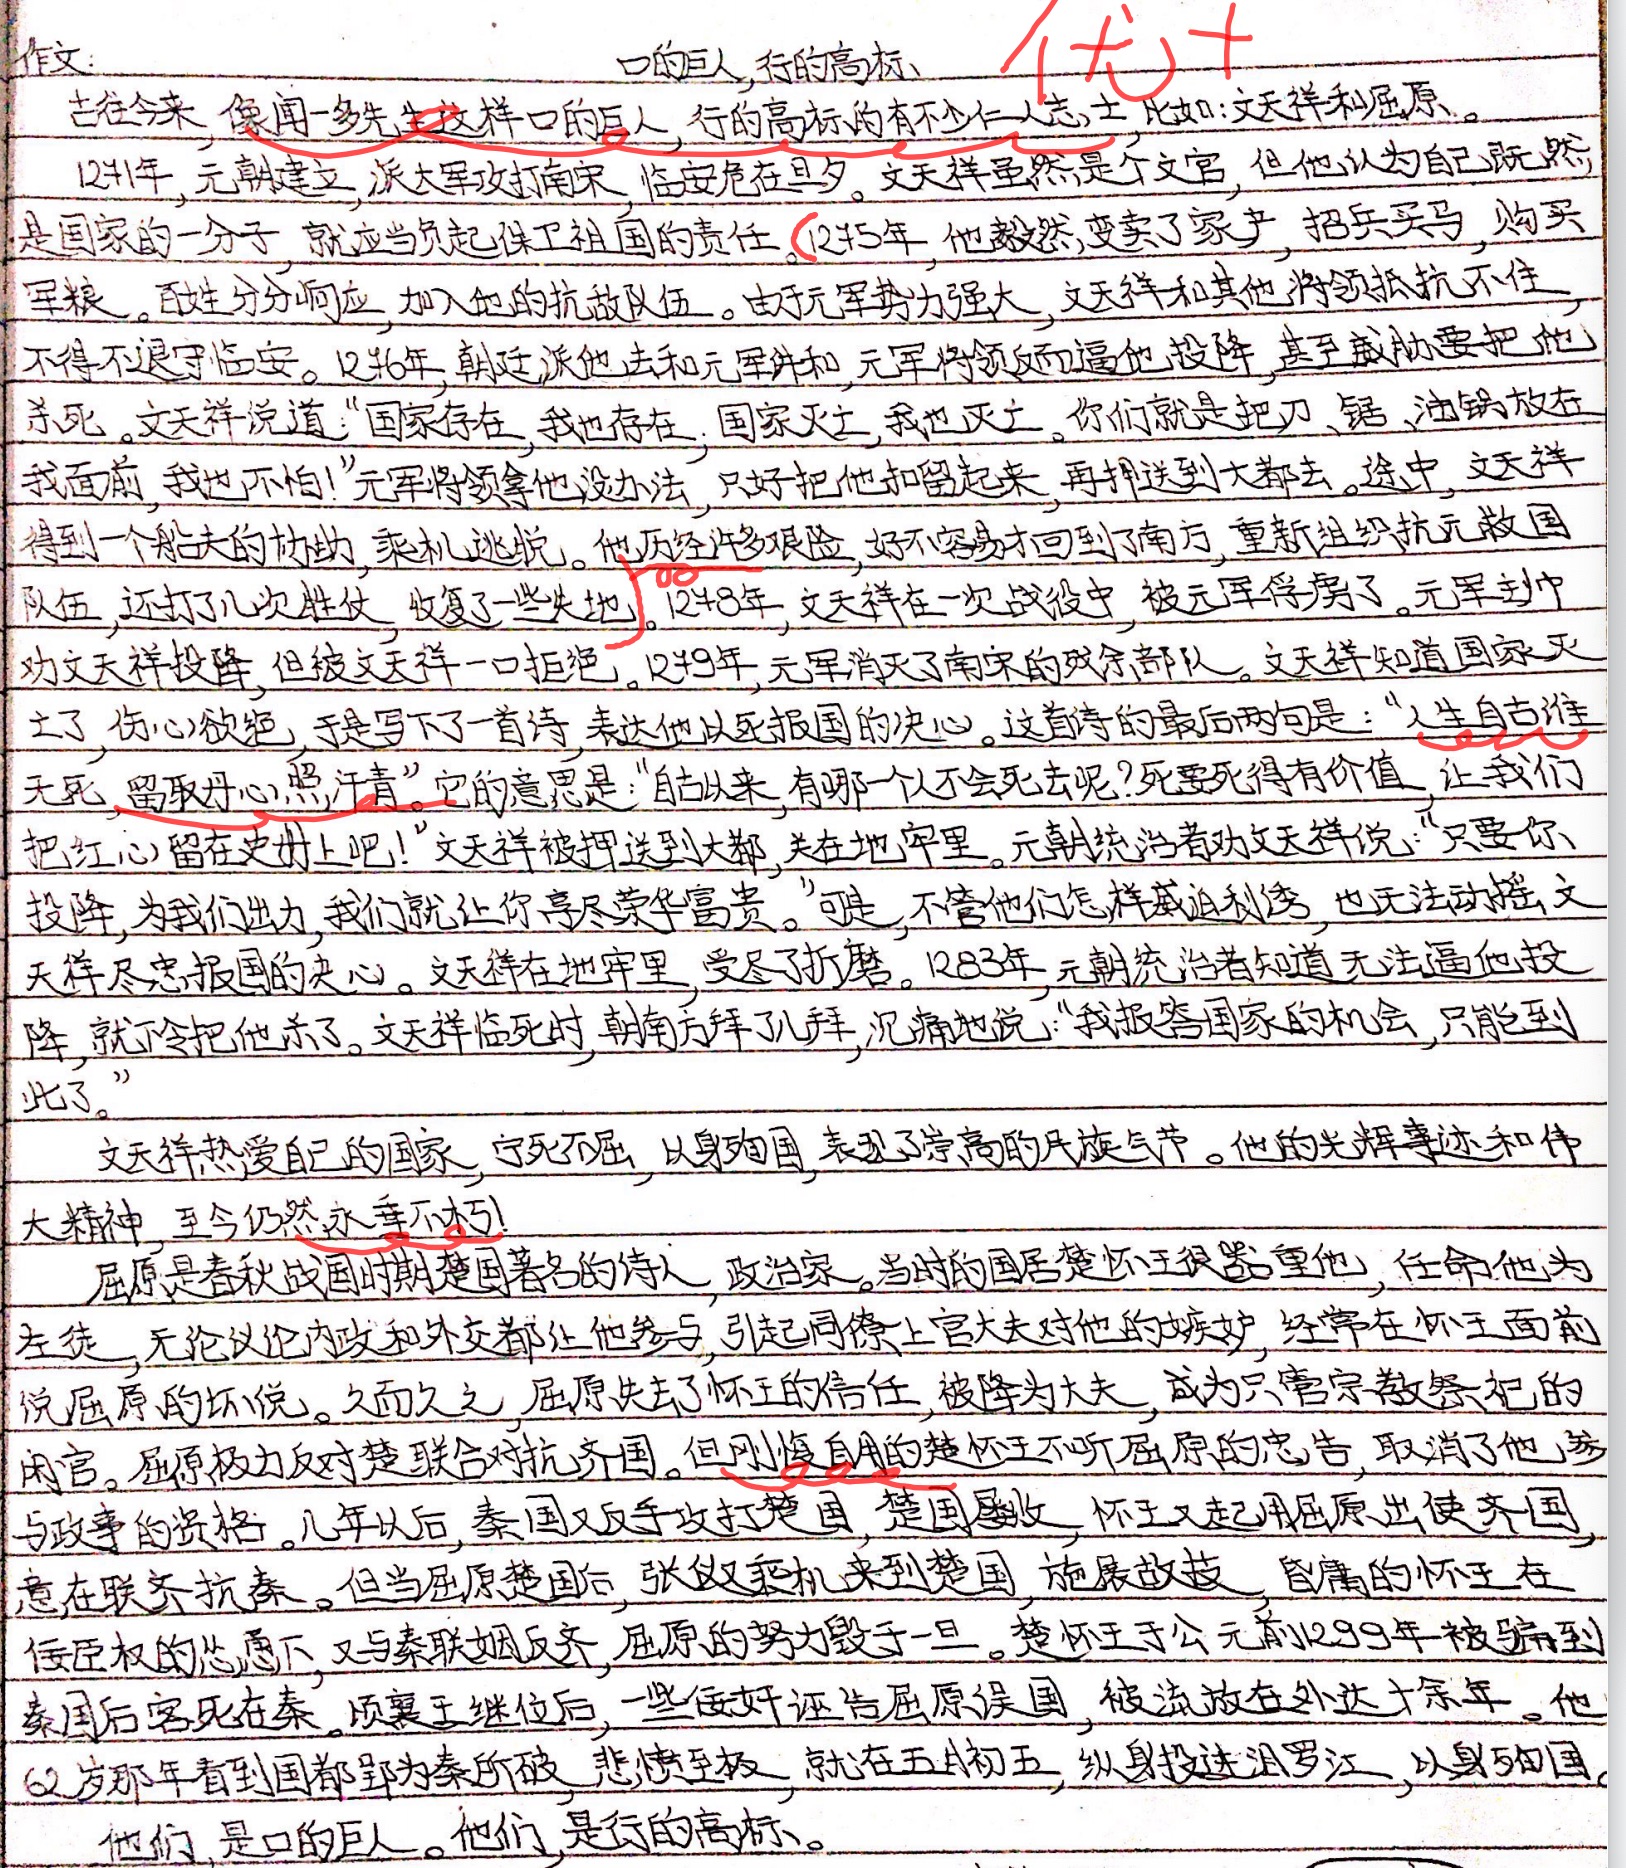 优+
作文: 口的巨人,行的高标、
古往今来,像闻一多先生这样口的巨人,行的高标的有不少仁人志士,比如:文天祥和屈原。
1271年,元朝建立,派大军攻打南宋,临安危在旦夕。文天祥虽然是个文官,但他认为自己既然
是国家的一分子,就应当负起保卫祖国的责任。(1275年,他毅然变卖了家产,招兵买马,购买
军粮。百姓分分响应,加入他的抗敌队伍。由于元军势力强大,文天祥和其他将领抵抗不住,
不得不退守临安。1276年,朝廷派他去和元军讲和,元军将领反而逼他投降,甚至威胁要把他
杀死。文天祥说道:“国家存在,我也存在;国家灭亡,我也灭亡。你们就是把刀、锯、油锅放在
我面前,我也不怕!”元军将领拿他没办法,只好把他扣留起来,再押送到大都去。途中,文天祥
得到一个船夫的协助,乘机逃脱。他历经许多艰险,好不容易才回到了南方,重新组织抗元救国
队伍,还打了几次胜仗,收复了一些失地)。1278年,文天祥在一次战役中,被元军俘虏了。元军主帅
劝文天祥投降,但被文天祥一口拒绝。1279年,元军消灭了南宋的残余部队。文天祥知道国家灭
亡了,伤心欲绝,于是写下了一首诗,表达他以死报国的决心。这首诗的最后两句是:“人生自古谁
无死,留取丹心照汗青”。它的意思是:“自古以来,有哪一个人不会死去呢?死要死得有价值,让我们
把红心留在史册上吧!”文天祥被押送到大都,关在地牢里。元朝统治者劝文天祥说:“只要你、
投降,为我们出力,我们就让你享尽荣华富贵。”可是,不管他们怎样威迫利诱,也无法动摇文
天祥尽忠报国的决心。文天祥在地牢里,受尽了折磨。1283年,元朝统治者知道无法逼他投
降,就下令把他杀了。文天祥临死时,朝南方拜了几拜,沉痛地说:“我报答国家的机会,只能到
此了。”
文天祥热爱自己的国家,宁死不屈,以身殉国,表现了崇高的民族气节。他的光辉事迹和伟
大精神,至今仍然永垂不朽!
屈原是春秋战国时期楚国著名的诗人,政治家。当时的国君楚怀王很器重他,任命他为
左徒,无论议论内政和外交都让他参与,引起同僚上官大夫对他的嫉妒,经常在怀王面前
说屈原的坏说。久而久之,屈原失去了怀王的信任,被降为大夫,成为只管宗教祭祀的
闲官。屈原极力反对楚联合对抗齐国。但刚愎自用的楚怀王不听屈原的忠告,取消了他参
与政事的资格。几年以后,秦国又反手攻打楚国,楚国屡收,怀王又起用屈原出使齐国,
意在联齐抗秦。但当屈原楚国后,张仪又乘机来到楚国,施展故技,昏庸的怀王在
佞臣权的怂恿下,又与秦联姻反齐,屈原的努力毁于一旦。楚怀王于公元前1299年被骗到
秦国后客死在秦。顷襄王继位后,一些佞奸诬告屈原误国,被流放在外达十余年。他
62岁那年看到国都郢为秦所破,悲愤至极,就在五月初五,纵身投进汨罗江,以身殉国。
他们,是口的巨人。他们,是行的高标、。